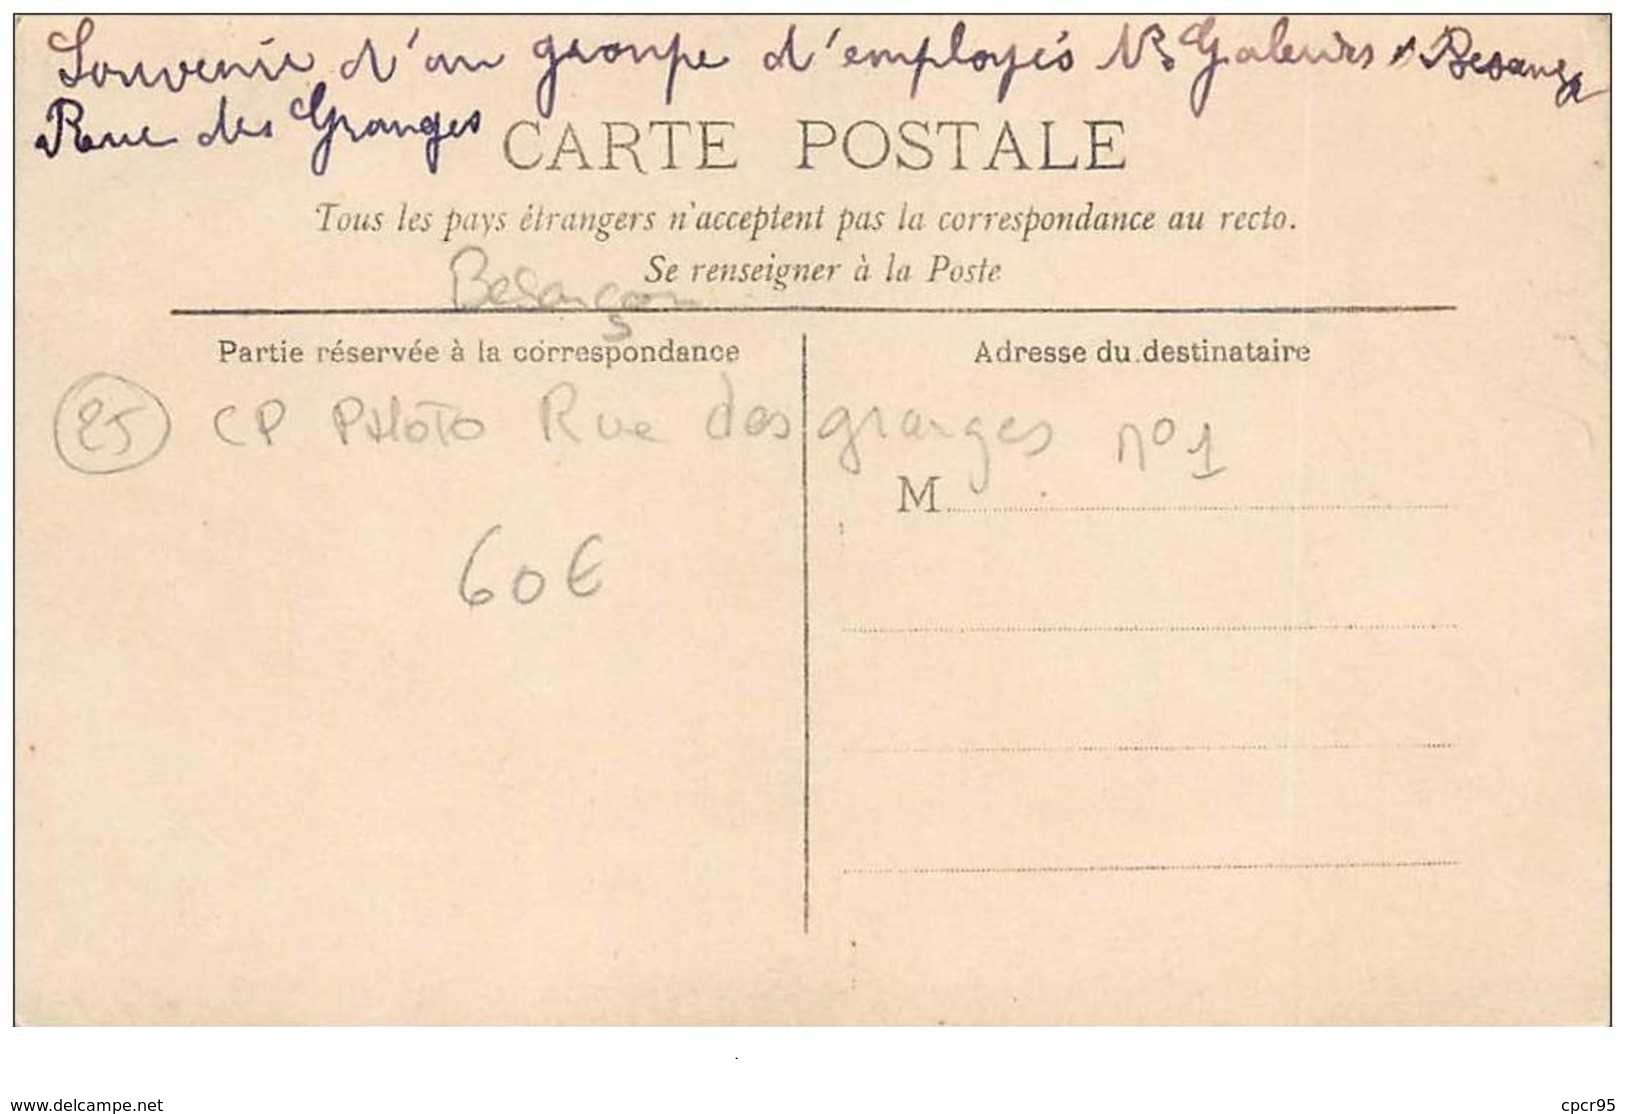 Souvenir d'un groupe d'employés Nles Galeries Besanç
Rue des Granges
CARTE POSTALE
Tous les pays étrangers n'acceptent pas la correspondance au recto.
Se renseigner à la Poste
Besançon
Partie réservée à la correspondance
Adresse du destinataire
25 CP PHOTO Rue des granges n° 1
M
60€
www.delcampe.net
cpcr95